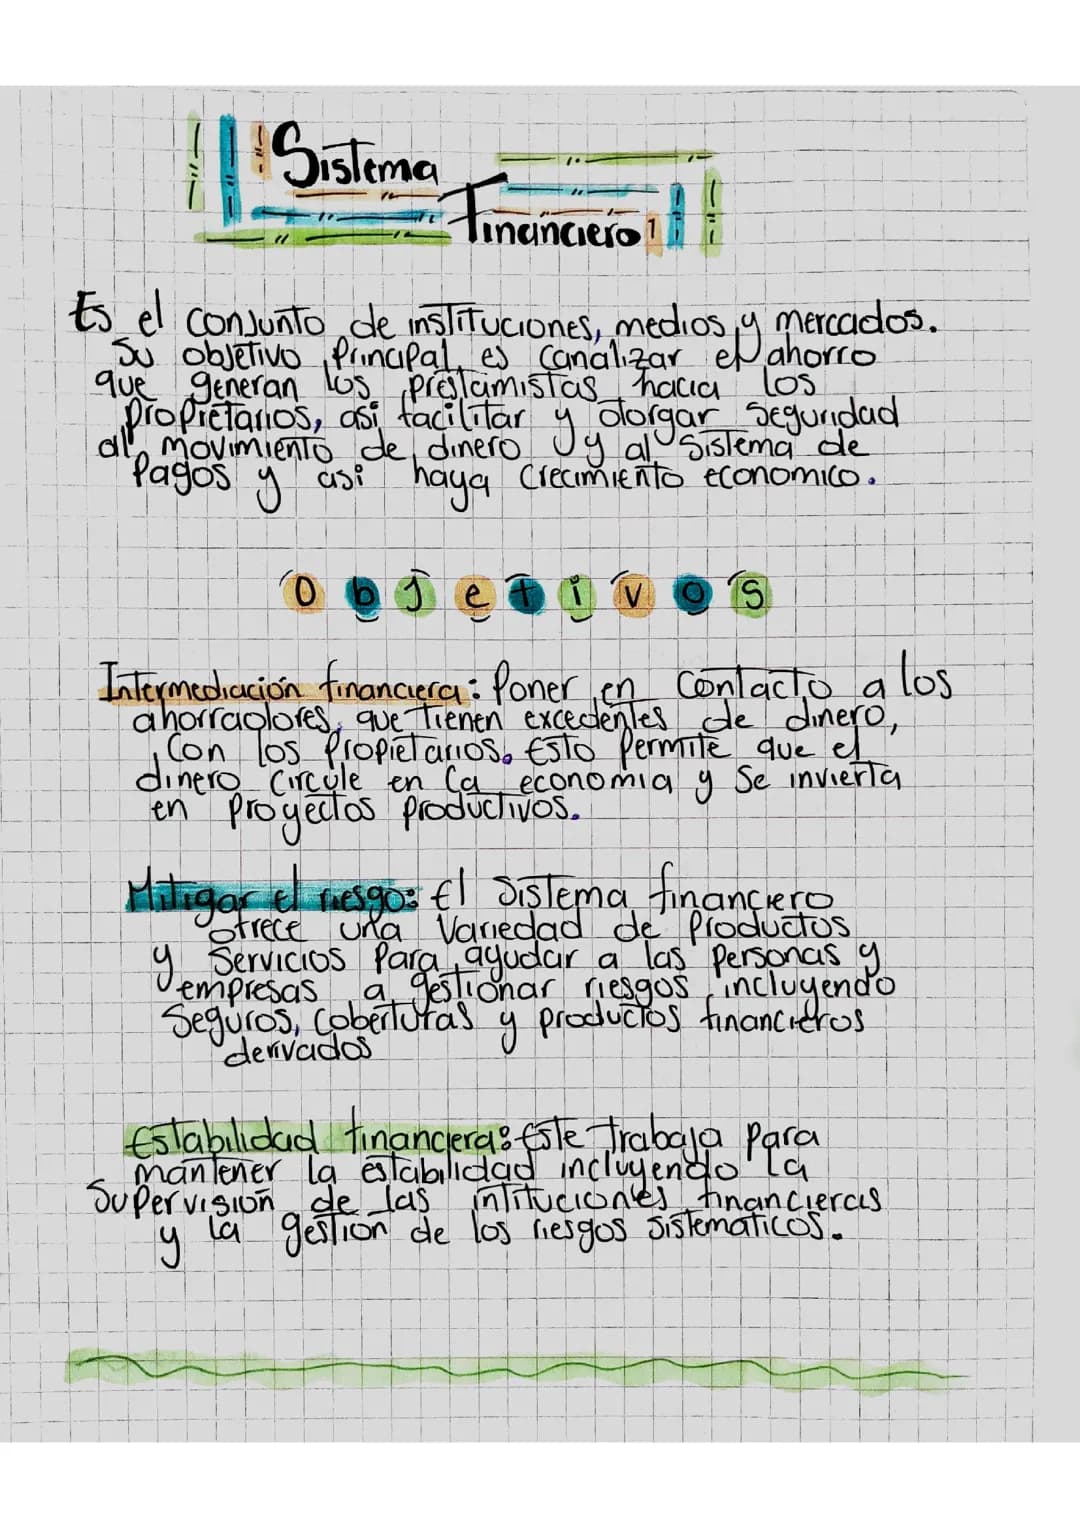 Sistema
Financiero
Es el conjunto de instituciones, medios y mercados.
Su objetivo principal es canalizar el ahorro
que generan los prestamistas hacia los
propietarios, asi facilitar y otorgar seguridad
al movimiento de dinero y al sistema de
pagos y asi haya crecimiento economico.
Objetivos
Intermediación financiera: Poner en contacto a los
ahorradores, que tienen excedentes de dinero,
con los propietarios. Esto permite que el
dinero circule en la economia y se invierta
en proyectos productivos.
Mitigar el riesgo: El sistema financiero
ofrece una variedad de productos
y servicios para ayudar a las personas y
empresas a gestionar riesgos incluyendo
seguros, coberturas y productos financieros
derivados
Estabilidad financiera: Este trabaja para
mantener la estabilidad incluyendo la
supervisión de las intituciones financieras
y la gestion de los riesgos sistematicos.